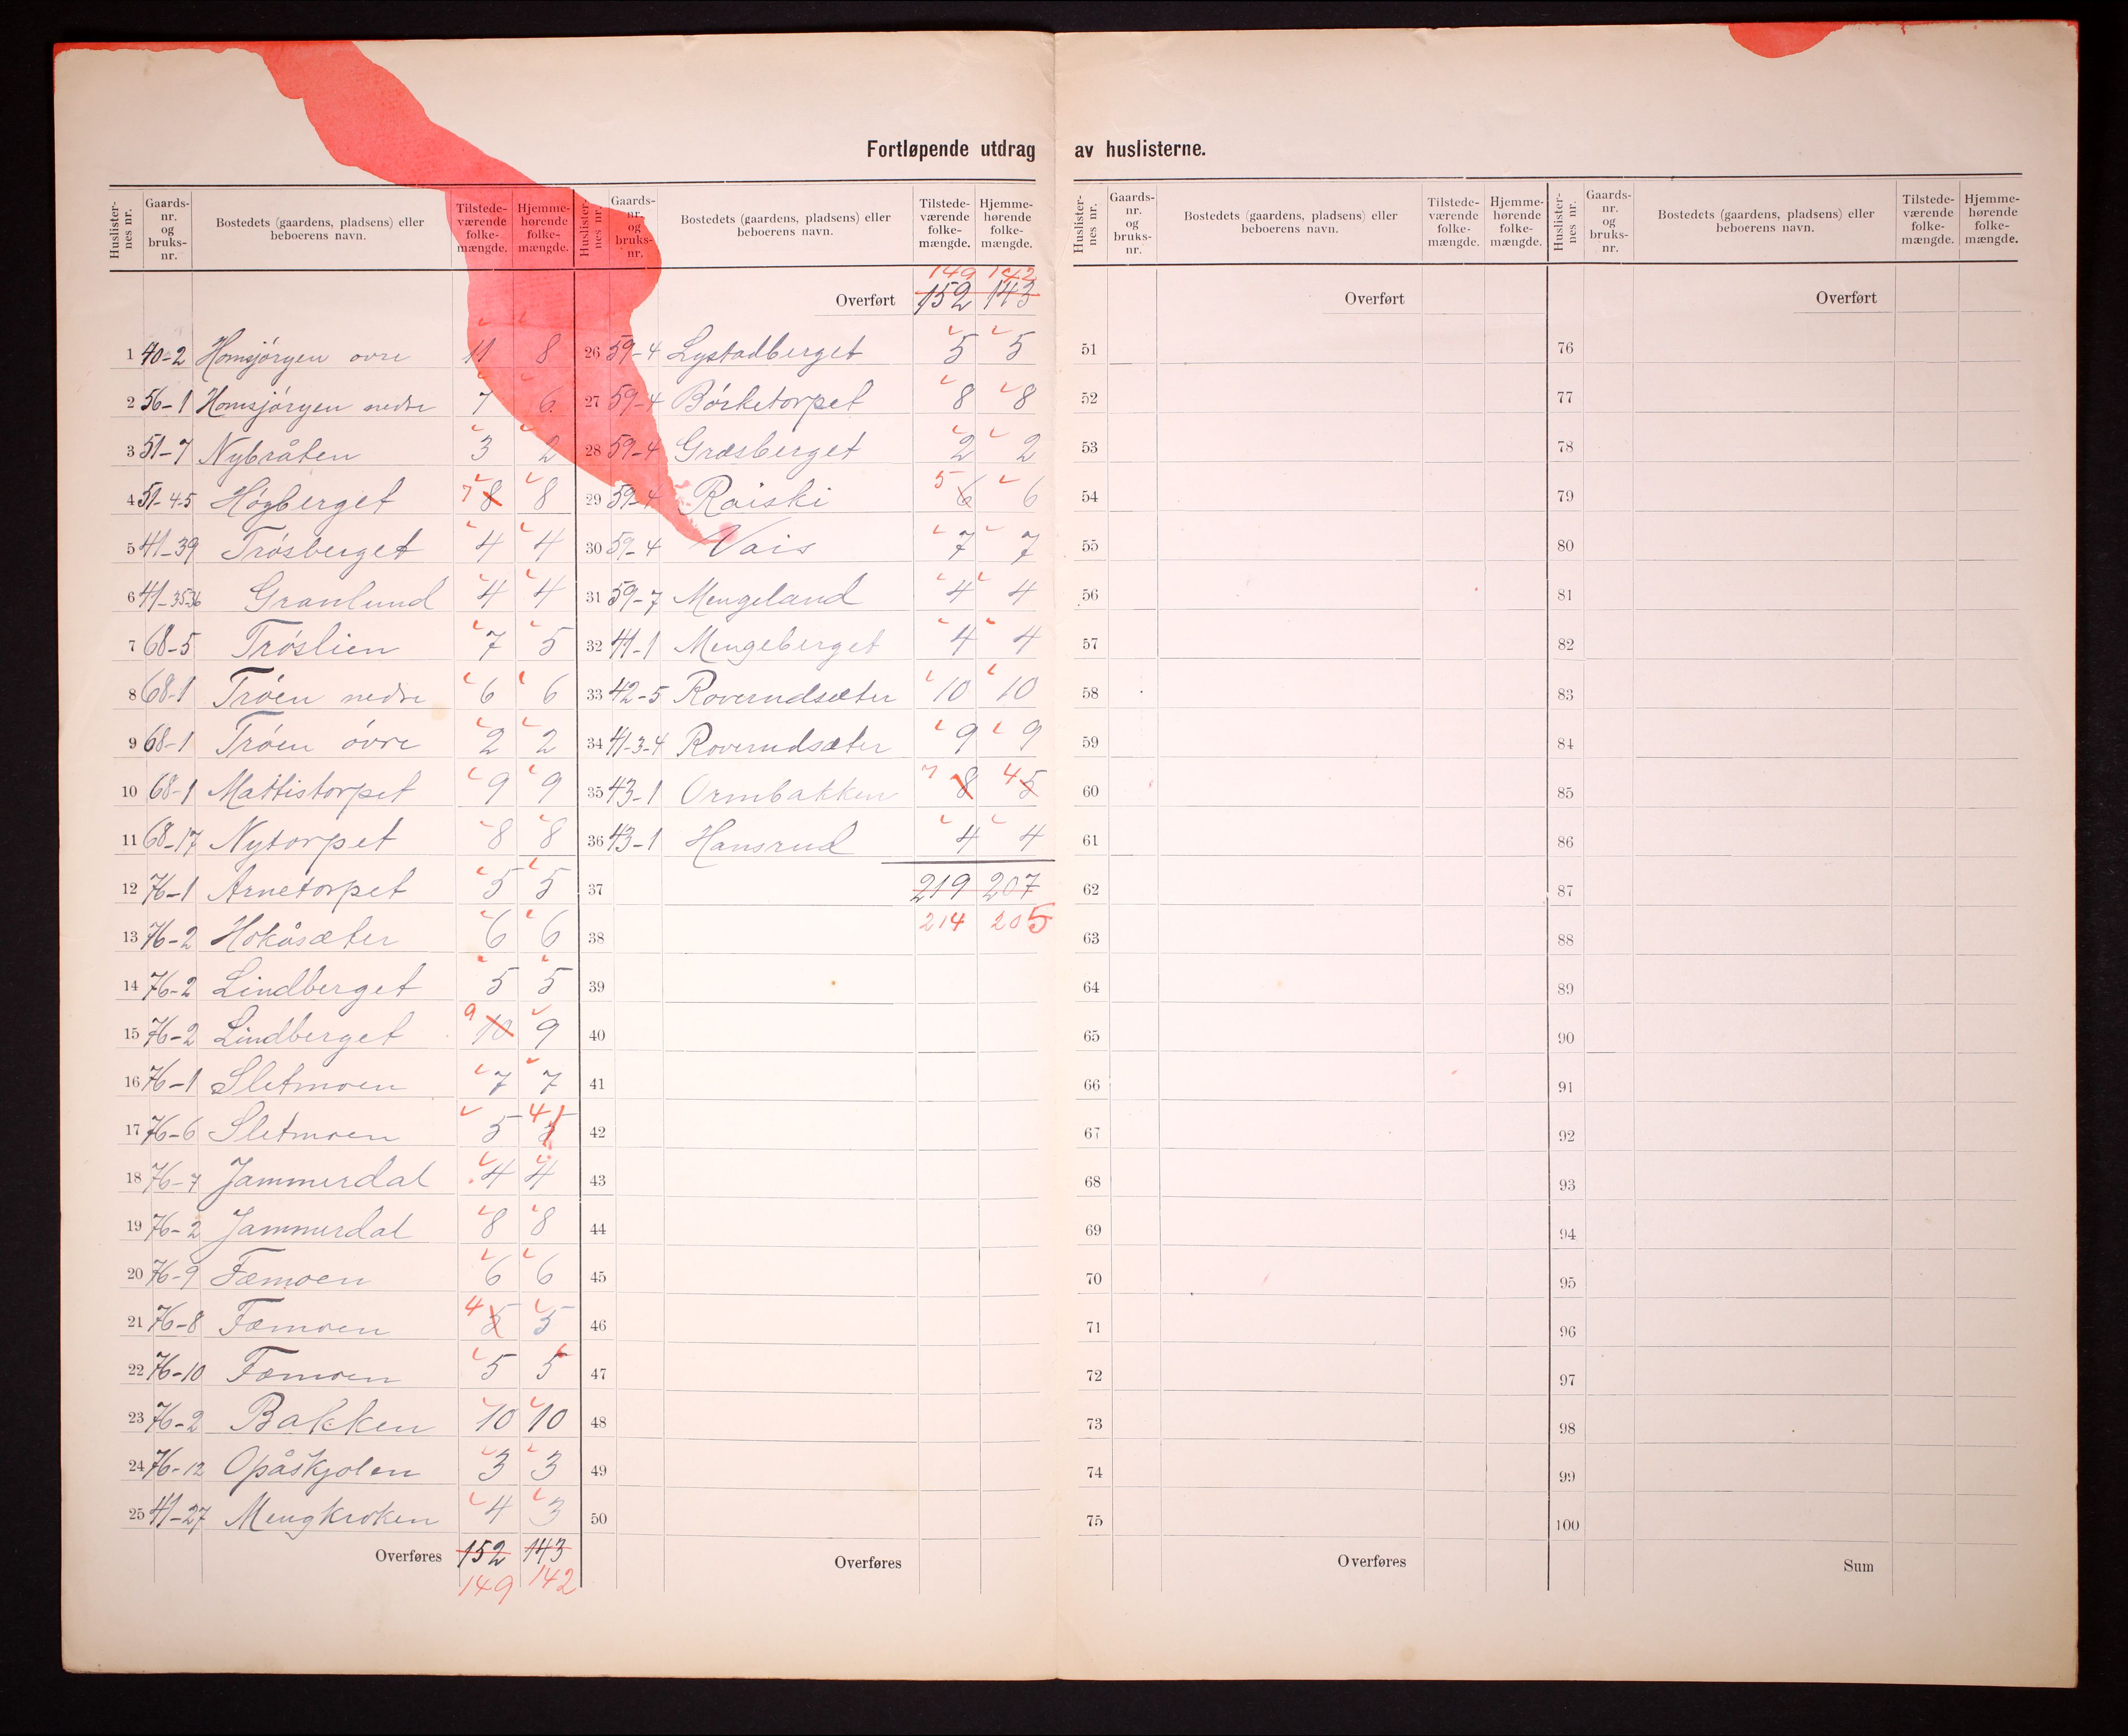 Fortløpende utdrag av huslisterne.
Huslisternes nr. Gaards-nr. og bruks-nr. Bostedets (gaardens, pladsens) eller beboerens navn. Tilstedeværende folkemængde. Hjemmehørende folkemængde.
1 40-2 Homsjörgen ovre 11 8
2 56-1 Homsjörgen nedre 7 6
3 51-7 Nybråten 3 2
4 51-4-5 Högberget 7 8 8
5 41-39 Trösberget 4 4
6 41-35-36 Granlund 4 4
7 68-5 Tröslien 7 5
8 68-1 Tröen nedre 6 6
9 68-1 Tröen övre 2 2
10 68-1 Mattistorpet 9 9
11 68-17 Nytorpet 8 8
12 76-1 Arnetorpet 5 5
13 76-2 Hokåsæter 6 6
14 76-2 Lindberget 5 5
15 76-2 Lindberget 9 10 9
16 76-1 Sletmoen 7 7
17 76-6 Sletmoen 5 4 5
18 76-7 Jammerdal 4 4
19 76-2 Jammerdal 8 8
20 76-9 Fæmoen 6 6
21 76-8 Fæmoen 4 5 5
22 76-10 Fæmoen 5 5
23 76-2 Bakken 10 10
24 76-12 Opåskjolen 3 3
25 41-27 Mengkroken 4 3
Overføres 152 143
149 142
Huslisternes nr. Gaards-nr. og bruks-nr. Bostedets (gaardens, pladsens) eller beboerens navn. Tilstedeværende folkemængde. Hjemmehørende folkemængde.
149 142
Overført 152 143
26 59-4 Lystadberget 5 5
27 59-4 Börketorpet 8 8
28 59-4 Græsberget 2 2
29 59-4 Raiski 5 6 6
30 59-4 Vais 7 7
31 59-7 Mengeland 4 4
32 41-1 Mengeberget 4 4
33 42-5 Roverudsæter 10 10
34 41-3-4 Roverudsæter 9 9
35 43-1 Ormbakken 7 8 4 5
36 43-1 Hansrud 4 4
37 219 207
38 214 205
39
40
41
42
43
44
45
46
47
48
49
50
Overføres
Huslisternes nr. Gaards-nr. og bruks-nr. Bostedets (gaardens, pladsens) eller beboerens navn. Tilstedeværende folkemængde. Hjemmehørende folkemængde.
Overført
51
52
53
54
55
56
57
58
59
60
61
62
63
64
65
66
67
68
69
70
71
72
73
74
75
Overføres
Huslisternes nr. Gaards-nr. og bruks-nr. Bostedets (gaardens, pladsens) eller beboerens navn. Tilstedeværende folkemængde. Hjemmehørende folkemængde.
Overført
76
77
78
79
80
81
82
83
84
85
86
87
88
89
90
91
92
93
94
95
96
97
98
99
100
Sum